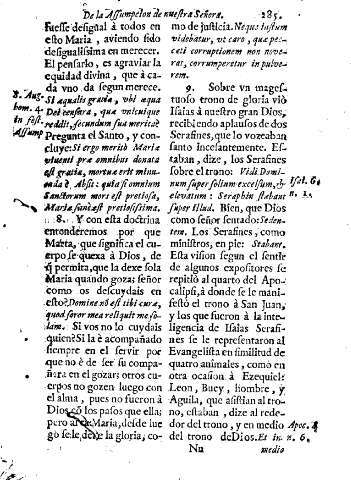 De la Assumpcion de nuestra Señora. 285.
fuesse desigual à todos en
esto Maria, aviendo sido
desigualissima en merecer.
El pensarlo, es agraviar la
equidad divina, que à ca-
da vno da segun merece.
Si æqualis gratia, vbi æqua
Dei censura, quæ vnicuique
reddit, secundum sua merita?
Pregunta el Santo, y con-
cluye: Si ergo meritò Maria
viventi præ omnibus donata
est gratia, mortuæ erit minu-
enda è? Absit: quia si omnium
Sanctorum mors est pretiosa,
Mariæ sanè est pretiosissima.
8. Y con esta doctrina
entonderemos por que
Marta, que significa el cuer-
po se quexa à Dios, de
q̃ permita, que la dexe sola
Maria quando goza; señor
como os descuydais en
esto? Domine nõ est tibi curæ,
quod soror mea reliquit me so-
lam. Si vos no lo cuydais
quien? Si la è acompañado
siempre en el servir por
que no è de ser su compa-
ñera en el gozar? otros cu-
erpos no gozen luego con
el alma, pues no fueron à
Dios cõ los pasos que ella;
pero al de Maria, desde lue
go se le deve la gloria, co-
8. Aug.
hom. 4.
in fest.
Assump
mo de justicia. Neque iustum
videbatur, vt caro, quæ pec-
cati corruptionem non nove-
rat, corrumperetur in pulve-
rem.
9. Sobre vn mages-
tuoso trono de gloria viò
Isaias à nuestro gran Dios,
recibiendo aplausos de dos
Serafines, que lo vozeaban
santo incesantemente. Es-
taban, dize, los Serafines
sobre el trono: Vidi Domi-
num super solium excelsum, &
elevatum: Seraphin stabant
super illud. Bien, que Dios
como señor sentado: Seden-
tem. Los Serafines, como
ministros, en pie: Stabant.
Esta vision segun el sentir
de algunos expositores se
repitiò al quarto del Apo-
calipsi, à donde se le mani-
festò el trono à San Juan,
y los que fueron à la inte-
ligencia de Isaias Serafi-
nes se le representaron al
Evangelista en similitud de
quatro animales, como en
otra ocasion à Ezequiel:
Leon, Buey, hombre, y
Aguila, que asistian al tro-
no, estaban, dize al rede-
dor del trono, y en medio
del trono de Dios. Et in
Isai. 6.
n. 1.
Apoc. 4
n. 6.
Nn medio